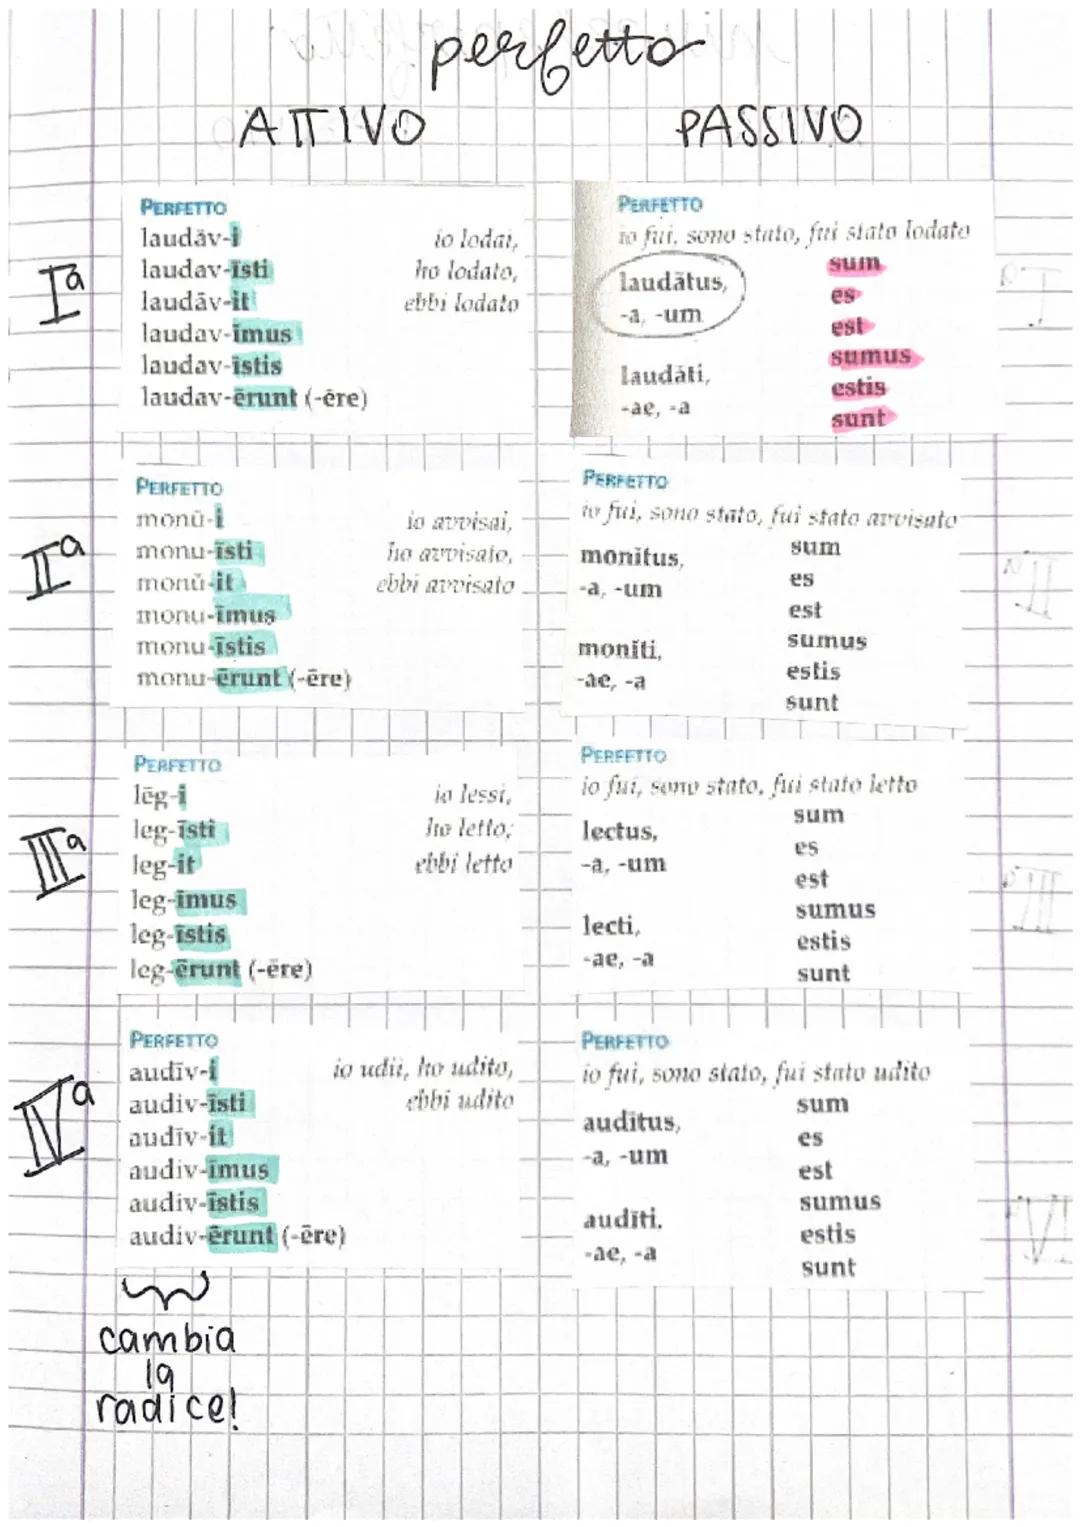 perfetto
ATTIVO
PASSIVO
Iª
PERFETTO
laudāv-i
io lodai,
laudav- īsti
ho lodato,
laudāv-it
ebbi lodato
laudav-ĭmus
laudav-īstis
laudav-ērunt (-ēre)
PERFETTO
io fui, sono stato, fui stato lodato
laudātus,
-a, -um
laudāti,
-ae, -a
sum
es
est
sumus
estis
sunt
IIª
PERFETTO
monŭ-i
io avvisai,
monu-īsti
ho avvisato,
monŭ-it
ebbi avvisato
monu-ĭmus
monu-īstis
monu-ērunt (-ēre)
PERFETTO
io fui, sono stato, fui stato avvisato
monĭtus,
-a, -um
monĭti,
-ae, -a
sum
es
est
sumus
estis
sunt
IIIª
PERFETTO
lēg-i
io lessi,
leg-īsti
ho letto,
leg-it
ebbi letto
leg-ĭmus
leg-īstis
leg-ērunt (-ēre)
PERFETTO
io fui, sono stato, fui stato letto
lectus,
-a, -um
lecti,
-ae, -a
sum
es
est
sumus
estis
sunt
IVª
PERFETTO
audīv-i
io udii, ho udito,
audiv-īsti
ebbi udito
audīv-it
audiv-ĭmus
audiv-īstis
audiv-ērunt (-ēre)
PERFETTO
io fui, sono stato, fui stato udito
audītus,
-a, -um
audīti,
-ae, -a
sum
es
est
sumus
estis
sunt
cambia
la
radice!